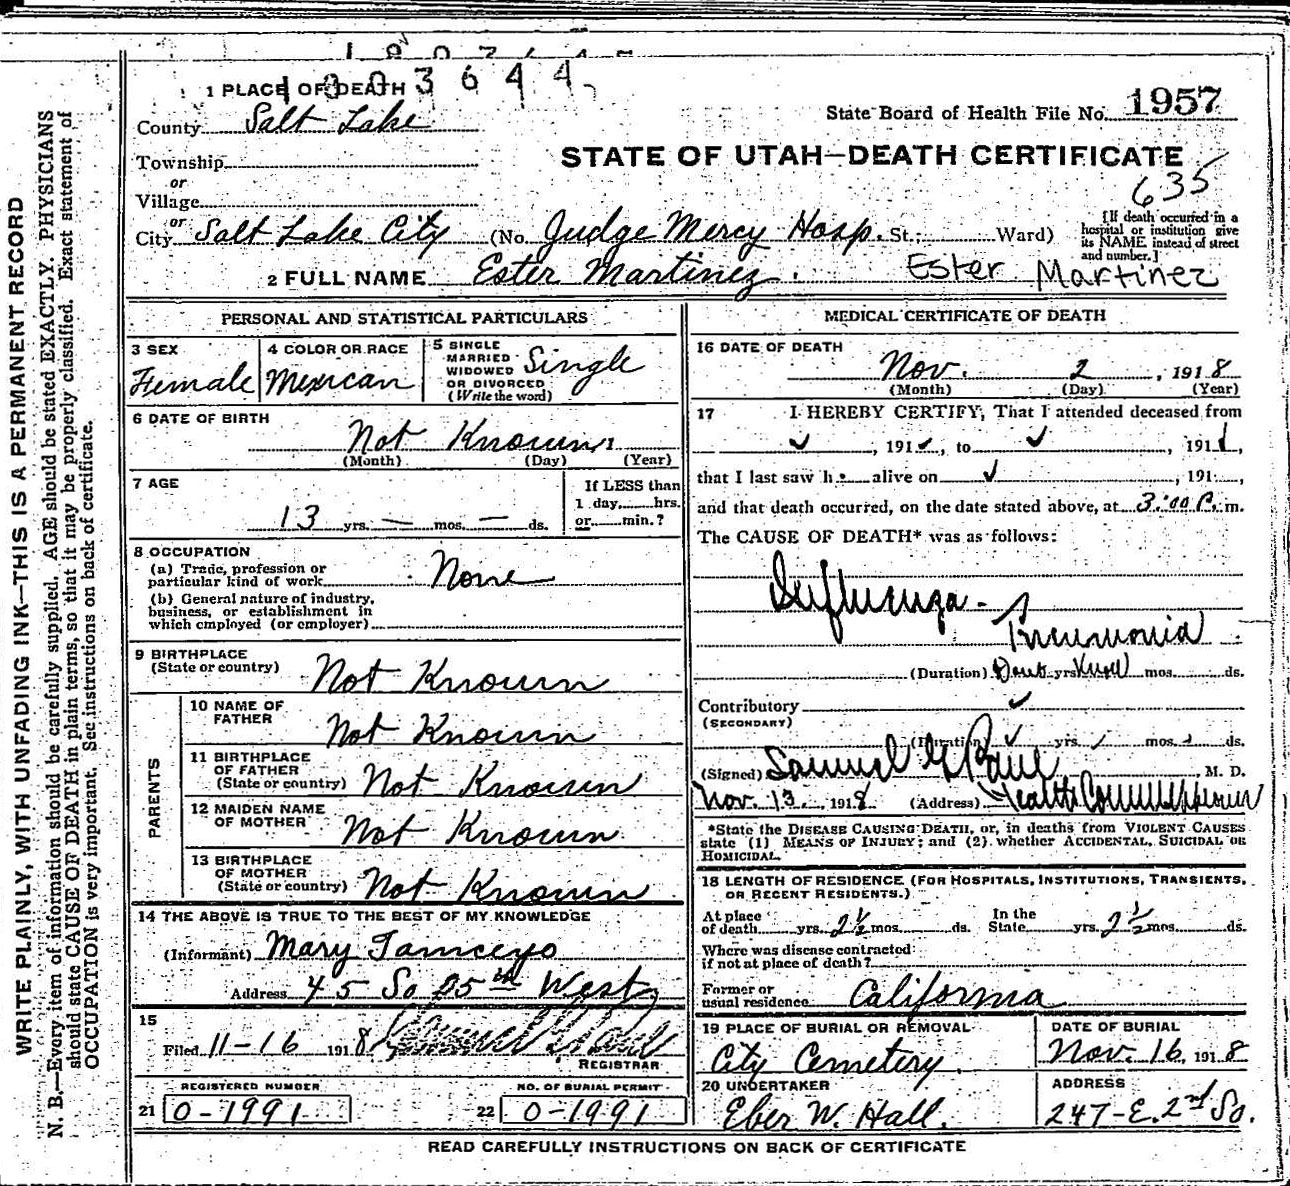 1303644
1 PLACE OF DEATH
State Board of Health File No. 1957
County Salt Lake
STATE OF UTAH—DEATH CERTIFICATE
Township
or
635
Village
or
City Salt Lake City (No. Judge Mercy Hosp. St.; Ward)
[If death occurred in a
hospital or institution give
its NAME instead of street
and number.]
2 FULL NAME Ester Martinez. Ester Martinez
PERSONAL AND STATISTICAL PARTICULARS
3 SEX
Female
4 COLOR OR RACE
Mexican
5 SINGLE
MARRIED
WIDOWED
OR DIVORCED
(Write the word)
Single
6 DATE OF BIRTH
Not Known
(Month) (Day) (Year)
7 AGE
13 yrs. — mos. — ds.
If LESS than
1 day, hrs.
or min.?
8 OCCUPATION
(a) Trade, profession or
particular kind of work None
(b) General nature of industry,
business, or establishment in
which employed (or employer)
9 BIRTHPLACE
(State or country) Not Known
PARENTS
10 NAME OF
FATHER Not Known
11 BIRTHPLACE
OF FATHER
(State or country) Not Known
12 MAIDEN NAME
OF MOTHER Not Known
13 BIRTHPLACE
OF MOTHER
(State or country) Not Known
14 THE ABOVE IS TRUE TO THE BEST OF MY KNOWLEDGE
(Informant) Mary
Address 45 So 25th West
15
Filed 11-16 1918
REGISTRAR
REGISTERED NUMBER
21 0-1991
NO. OF BURIAL PERMIT
22 0-1991
MEDICAL CERTIFICATE OF DEATH
16 DATE OF DEATH
Nov. 2, 1918
(Month) (Day) (Year)
17 I HEREBY CERTIFY, That I attended deceased from
✓, 191✓, to ✓, 191
that I last saw h alive on ✓, 191,
and that death occurred, on the date stated above, at 3:00 P. m.
The CAUSE OF DEATH* was as follows:
Influenza -
Pneumonia
(Duration) Dont yrs Know mos. ds.
Contributory ✓
(SECONDARY)
(Duration) ✓ yrs. mos. ds.
(Signed) Samuel G Paul, M. D.
Nov. 13, 1918 (Address) Health Commissioner
*State the DISEASE CAUSING DEATH, or, in deaths from VIOLENT CAUSES
state (1) MEANS OF INJURY; and (2) whether ACCIDENTAL, SUICIDAL OR
HOMICIDAL.
18 LENGTH OF RESIDENCE (FOR HOSPITALS, INSTITUTIONS, TRANSIENTS,
OR RECENT RESIDENTS.)
At place
of death yrs. 2½ mos. ds.
In the
State yrs. 2½ mos. ds.
Where was disease contracted
if not at place of death?
Former or
usual residence California
19 PLACE OF BURIAL OR REMOVAL
City Cemetery.
DATE OF BURIAL
Nov. 16, 1918
20 UNDERTAKER
Eber W. Hall.
ADDRESS
247-E. 2nd So.
READ CAREFULLY INSTRUCTIONS ON BACK OF CERTIFICATE
WRITE PLAINLY, WITH UNFADING INK—THIS IS A PERMANENT RECORD
N. B.—Every item of information should be carefully supplied. AGE should be stated EXACTLY. PHYSICIANS
should state CAUSE OF DEATH in plain terms, so that it may be properly classified. Exact statement of
OCCUPATION is very important. See instructions on back of certificate.